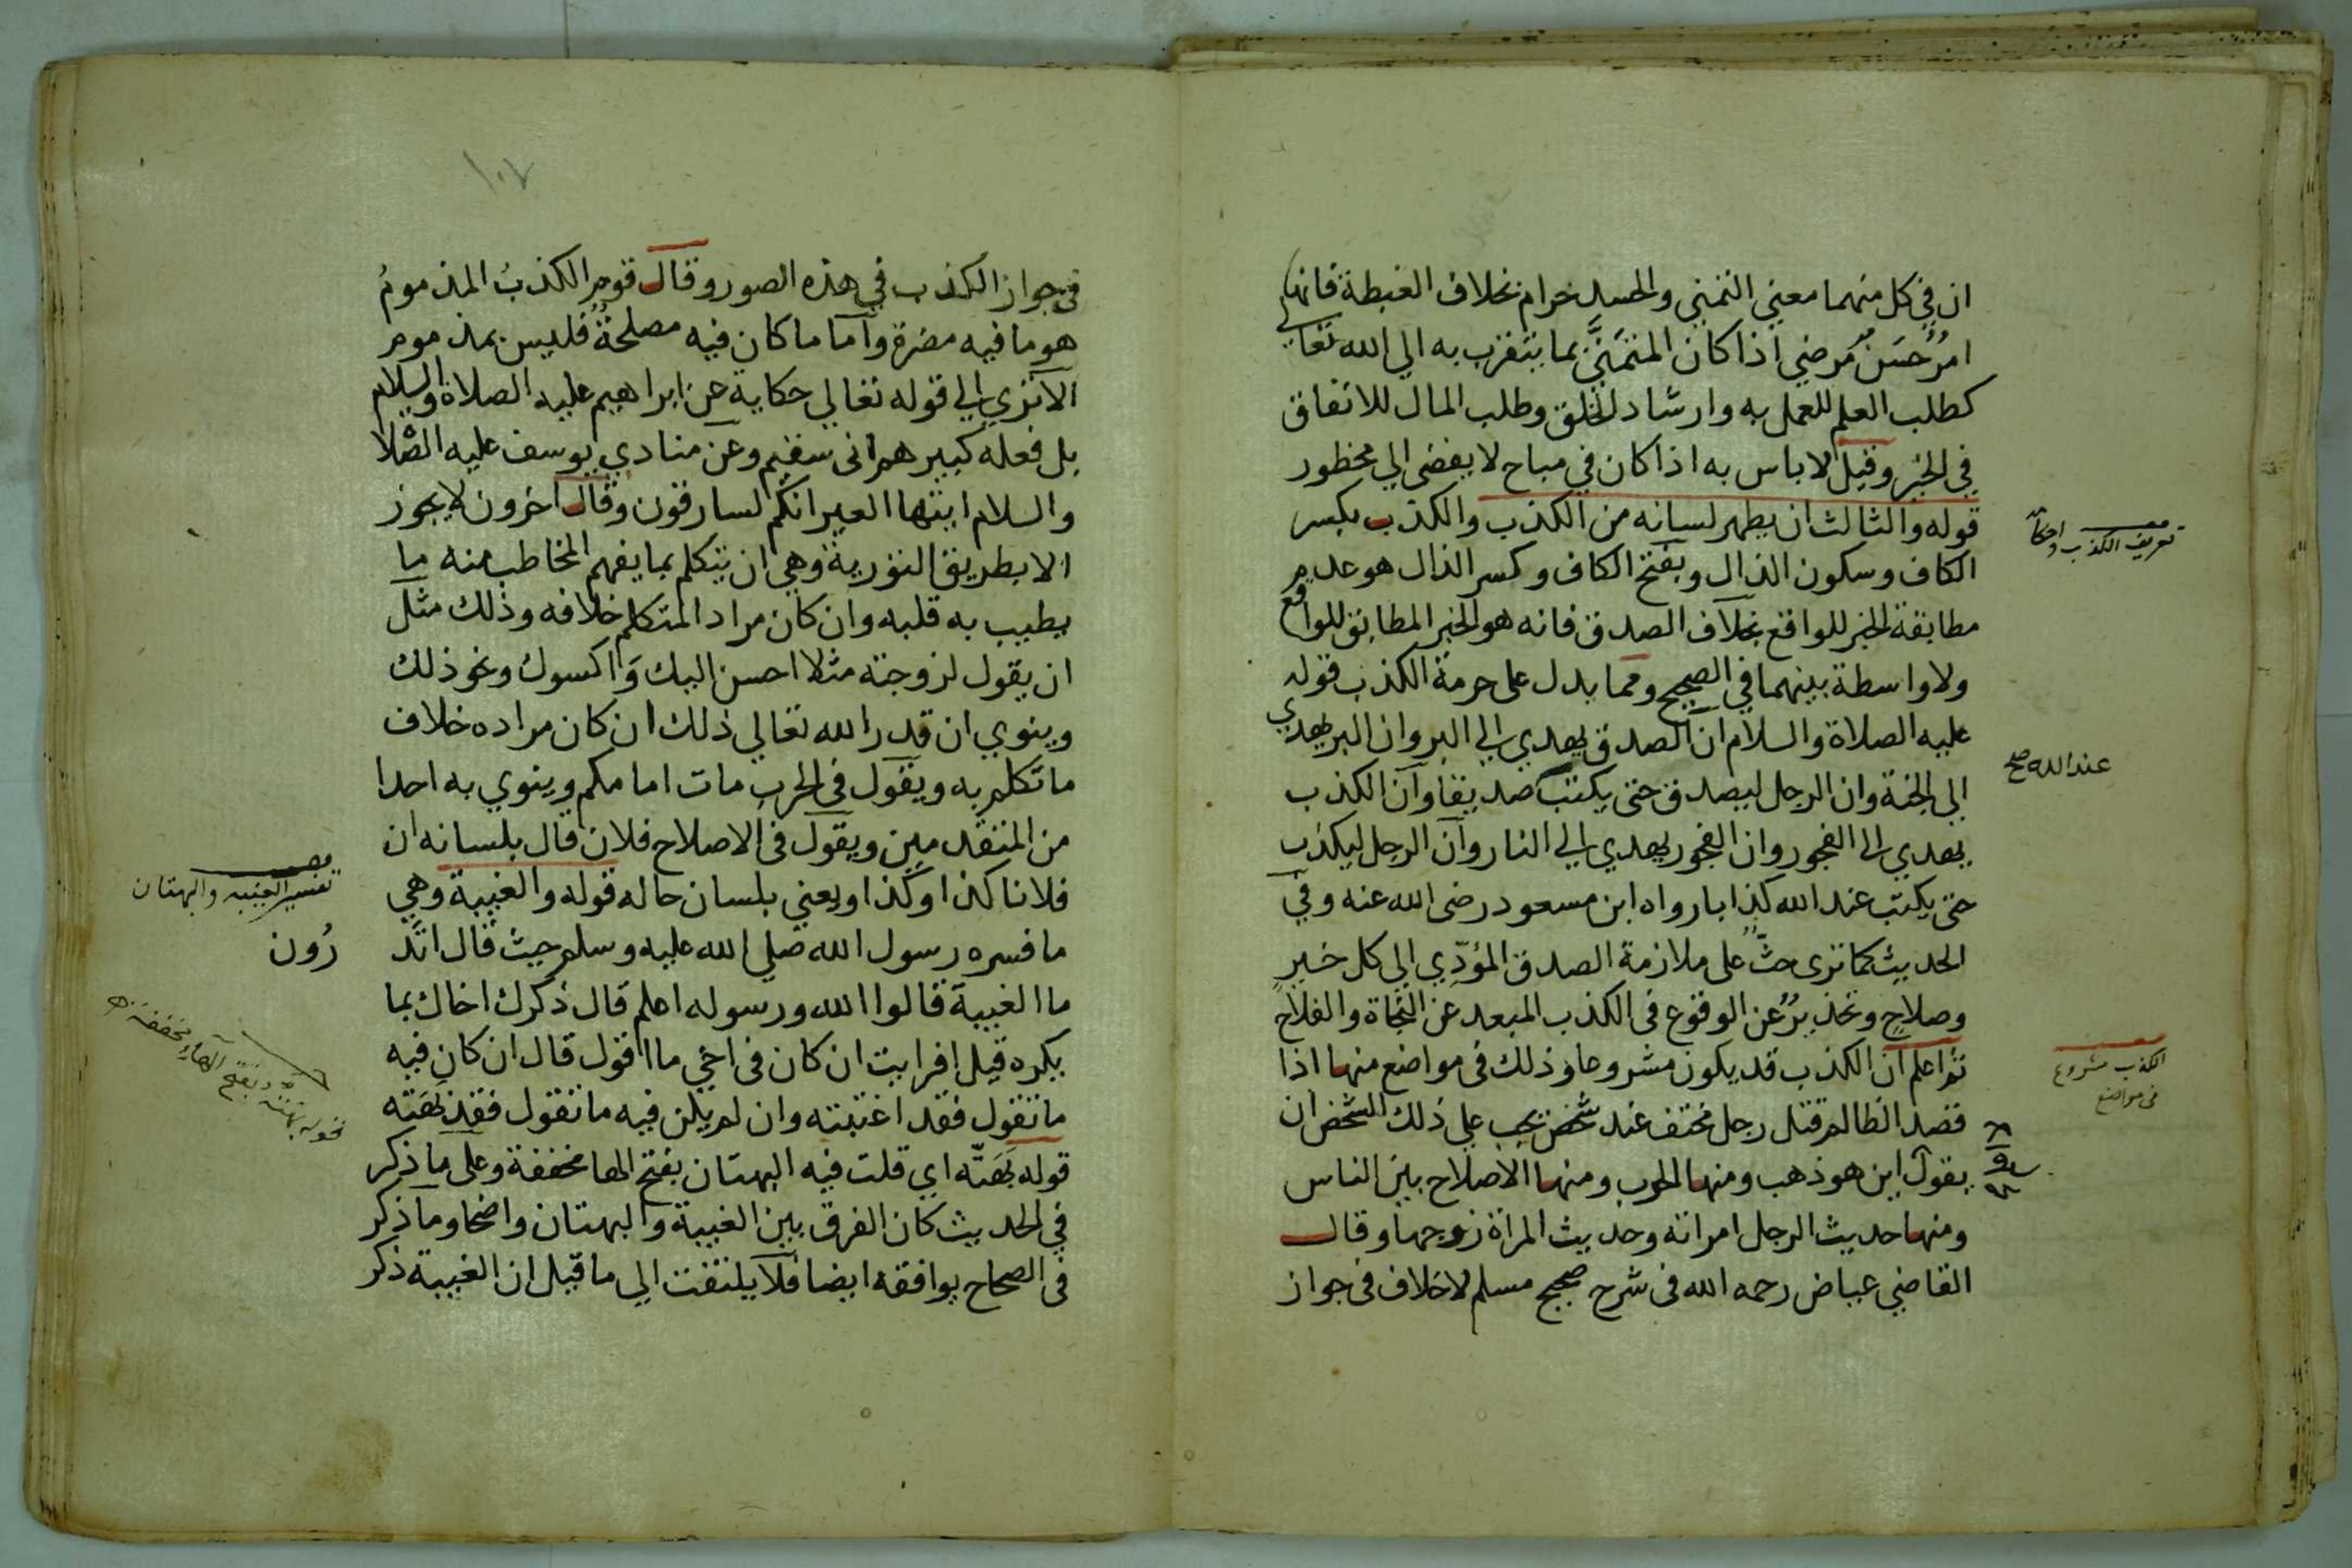 ان في كل منهما معني التمني والحسد حرام بخلاف الغبطة فانها
امرٌ حسَنٌ مُرضي اذا كان المتمَنَّي بما يتقرب به الي الله تعالي
كطلب العلم للعمل به وارشاد الخلق وطلب المال للانفاق
في الخير وقيل لا باس به اذا كان في مباح لا يفضي الي محظور
قوله والثالث ان يطهر لسانه من الكذب والكذب بكسر
الكاف وسكون الذال وبفتح الكاف وكسر الذال هو عدم
مطابقة الخبر للواقع بخلاف الصدق فانه هو الخبر المطابق للواقع
ولا واسطة بينهما في الصحيح ومما يدل على حرمة الكذب قوله
عليه الصلاة والسلام ان الصدق يهدي الي البر وان البر يهدي
الي الجنة وان الرجل ليصدق حتى يكتب صديقا وان الكذب
يهدي الي الفجور وان الفجور يهدي الي النار وان الرجل ليكذب
حتى يكتب عند الله كذابا رواه ابن مسعود رضى الله عنه وفي
الحديث كما ترى حثٌّ على ملازمة الصدق المؤدِّي الي كل خير
وصلاحٍ وتحذيرٌ عن الوقوع في الكذب المبعد عن النجاة والفلاح
ثم اعلم ان الكذب قد يكون مشروعا وذلك في مواضع منها اذا
قصد الظالم قتل رجل مختف عند شخص يجب علي ذلك الشخص ان
يقول اين هو ذهب ومنها الحرب ومنها الاصلاح بين الناس
ومنها حديث الرجل امراته وحديث المراة زوجها وقال
القاضي عياض رحمه الله في شرح صحيح مسلم لا خلاف في جواز
تعريف الكذب واحكا
عند الله صح
الكذب مشروع
في مواضع
١٠٧
في جواز الكذب في هذه الصور وقال قوم الكذبُ المذمومُ
هو ما فيه مضرة واما ما كان فيه مصلحةٌ فليس بمذموم
الا ترى الي قوله تعالي حكاية عن ابراهيم عليه الصلاة والسلام
بل فعله كبيرهم انى سقيم وعن منادي يوسف عليه الصلا
والسلام ايتها العير انكم لسارقون وقال اخرون لا يجوز
الا بطريق التورية وهي ان يتكلم بما يفهم المخاطب منه ما
يطيب به قلبه وان كان مراد المتكلم خلافه وذلك مثل
ان يقول لزوجته مثلا احسن اليك وَاكسوك ونحو ذلك
وينوي ان قدر الله تعالي ذلك ان كان مراده خلاف
ما تكلم به ويقول في الحرب مات امامكم وينوي به احدا
من المتقدمين ويقول في الاصلاح فلان قال بلسانه ان
فلانا كذا وكذا ويعني بلسان حاله قوله والغيبة وهي
ما فسره رسول الله صلي الله عليه وسلم حيث قال اتد رُون
ما الغيبة قالوا الله ورسوله اعلم قال ذكرك اخاك بما
يكره قيل افرايت ان كان في اخي ما اقول قال ان كان فيه
ما تقول فقد اغتبته وان لم يكن فيه ما تقول فقد بَهَته
قوله بَهَتّه اي قلت فيه البهتان بفتح الها مخففة وعلى ما ذكر
في الحديث كان الفرق بين الغيبة والبهتان واضحا وما ذكر
في الصحاح يوافقه ايضا فلا يلتفت الي ما قيل ان الغيبة ذكر
تفسير الغيبة والبهتان